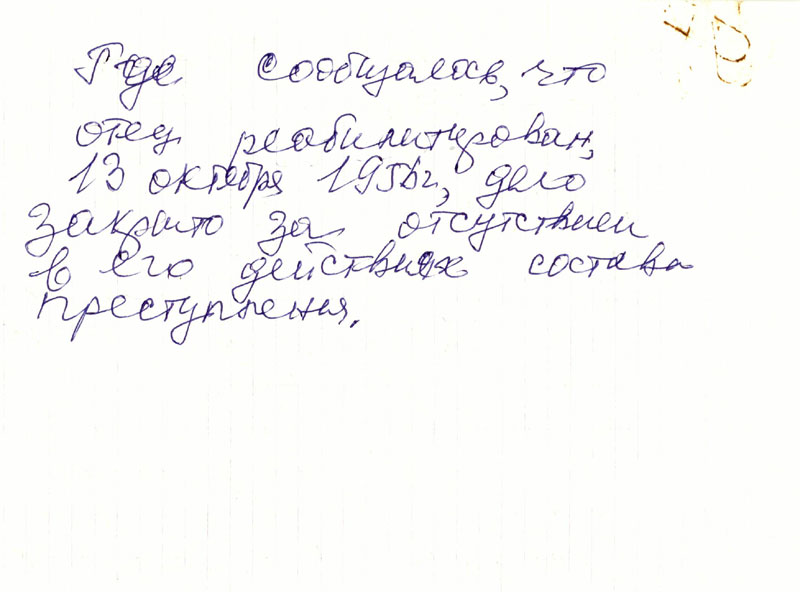 Где сообщалось, что
отец реабилитирован,
13 октября 1956г, дело
закрыто за отсутствием
в его действиях состава
преступления.